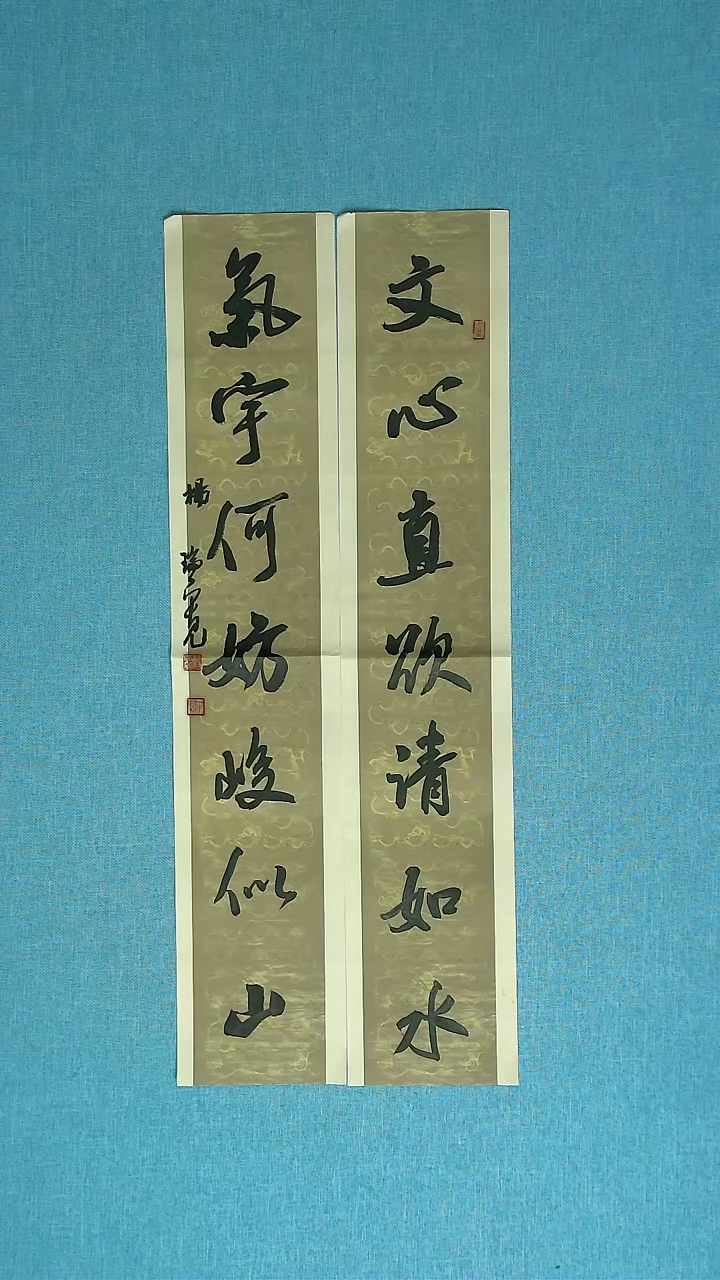 文心直欲请如水
氣宇何妨峻似山
楊瑞寬